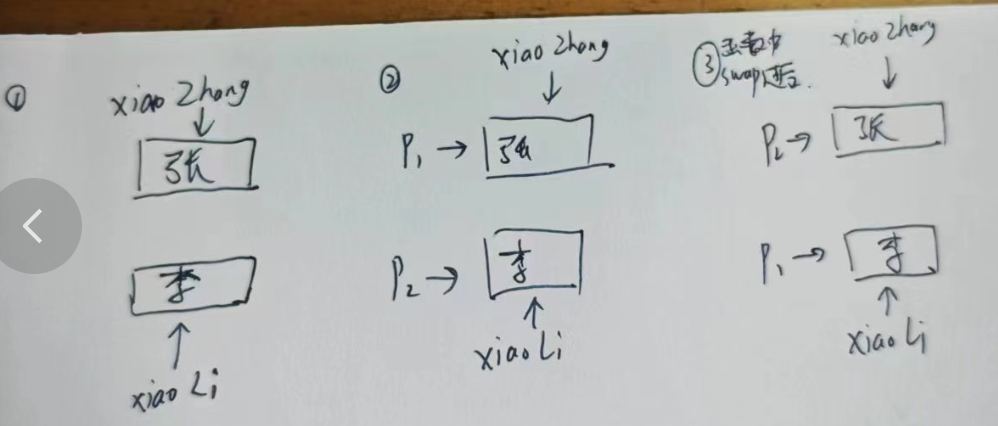 ①
xiao Zhang
张
李
xiao Li
②
xiao Zhang
P₁ → 张
P₂ → 李
xiao Li
③ 函数中
swap过后.
xiao Zhang
P₂ → 张
P₁ → 李
xiao Li